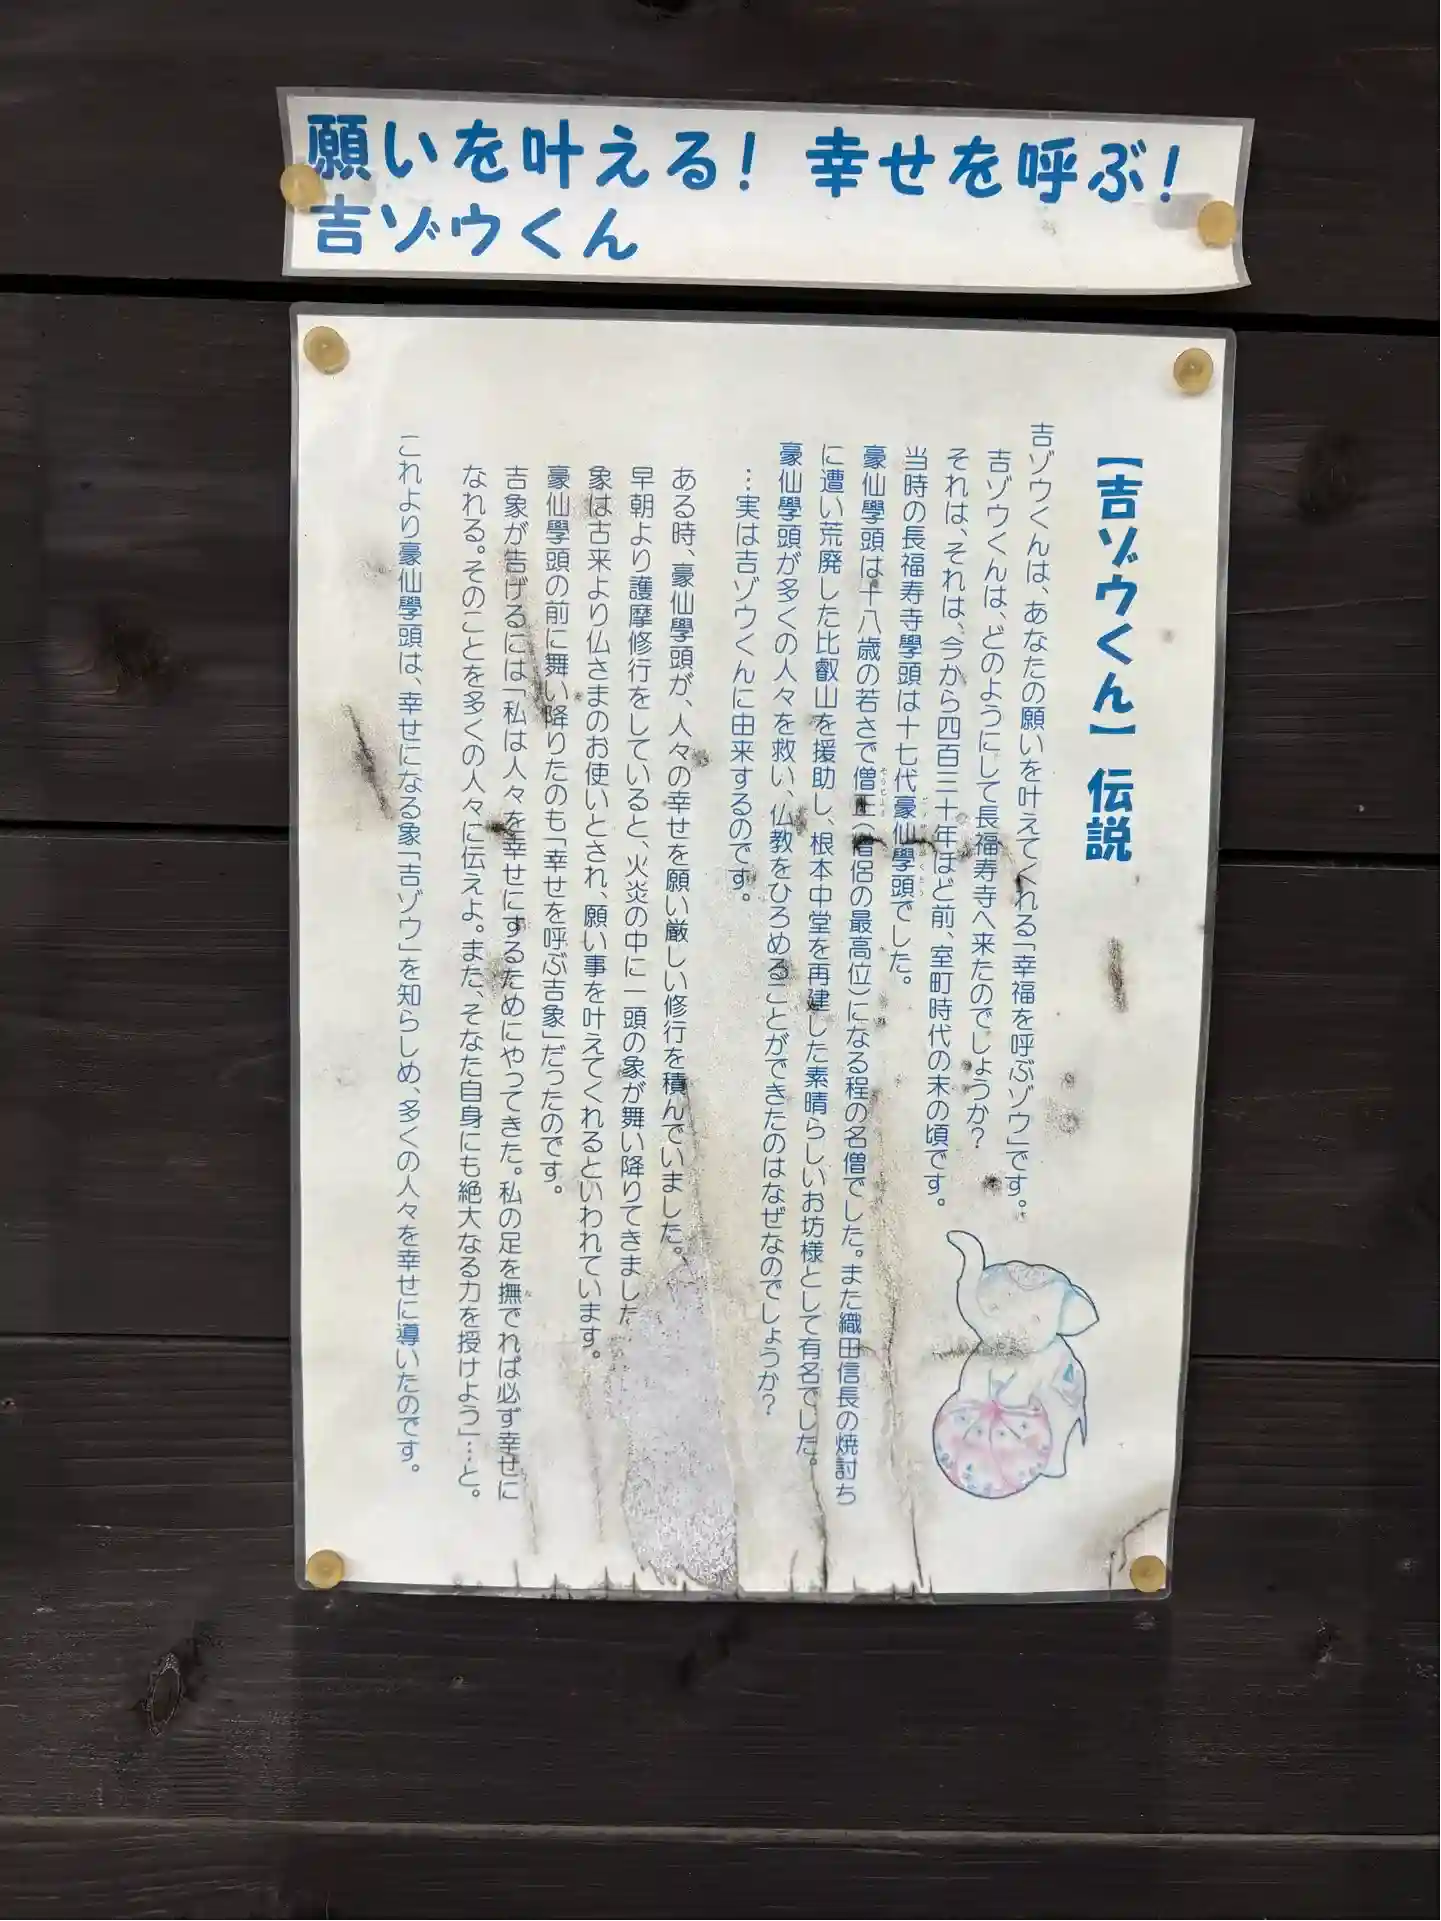 願いを叶える! 幸せを呼ぶ!
吉ゾウくん
【吉ゾウくん】伝説
吉ゾウくんは、あなたの願いを叶えてくれる「幸福を呼ぶゾウ」です。
吉ゾウくんは、どのようにして長福寿寺へ来たのでしょうか?
それは、それは、今から四百三十年ほど前、室町時代の末の頃です。
当時の長福寿寺學頭は十七代豪仙學頭でした。
豪仙學頭は十八歳の若さで僧正(僧侶の最高位)になる程の名僧でした。また織田信長の焼討ち
に遭い荒廃した比叡山を援助し、根本中堂を再建した素晴らしいお坊様として有名でした。
豪仙學頭が多くの人々を救い、仏教をひろめることができたのはなぜなのでしょうか?
…実は吉ゾウくんに由来するのです。
ある時、豪仙學頭が、人々の幸せを願い厳しい修行を積んでいました。
早朝より護摩修行をしていると、火炎の中に一頭の象が舞い降りてきました
象は古来より仏さまのお使いとされ、願い事を叶えてくれるといわれています。
豪仙學頭の前に舞い降りたのも「幸せを呼ぶ吉象」だったのです。
吉象が告げるには「私は人々を幸せにするためにやってきた。私の足を撫でれば必ず幸せに
なれる。そのことを多くの人々に伝えよ。また、そなた自身にも絶大なる力を授けよう」…と。
これより豪仙學頭は、幸せになる象「吉ゾウ」を知らしめ、多くの人々を幸せに導いたのです。